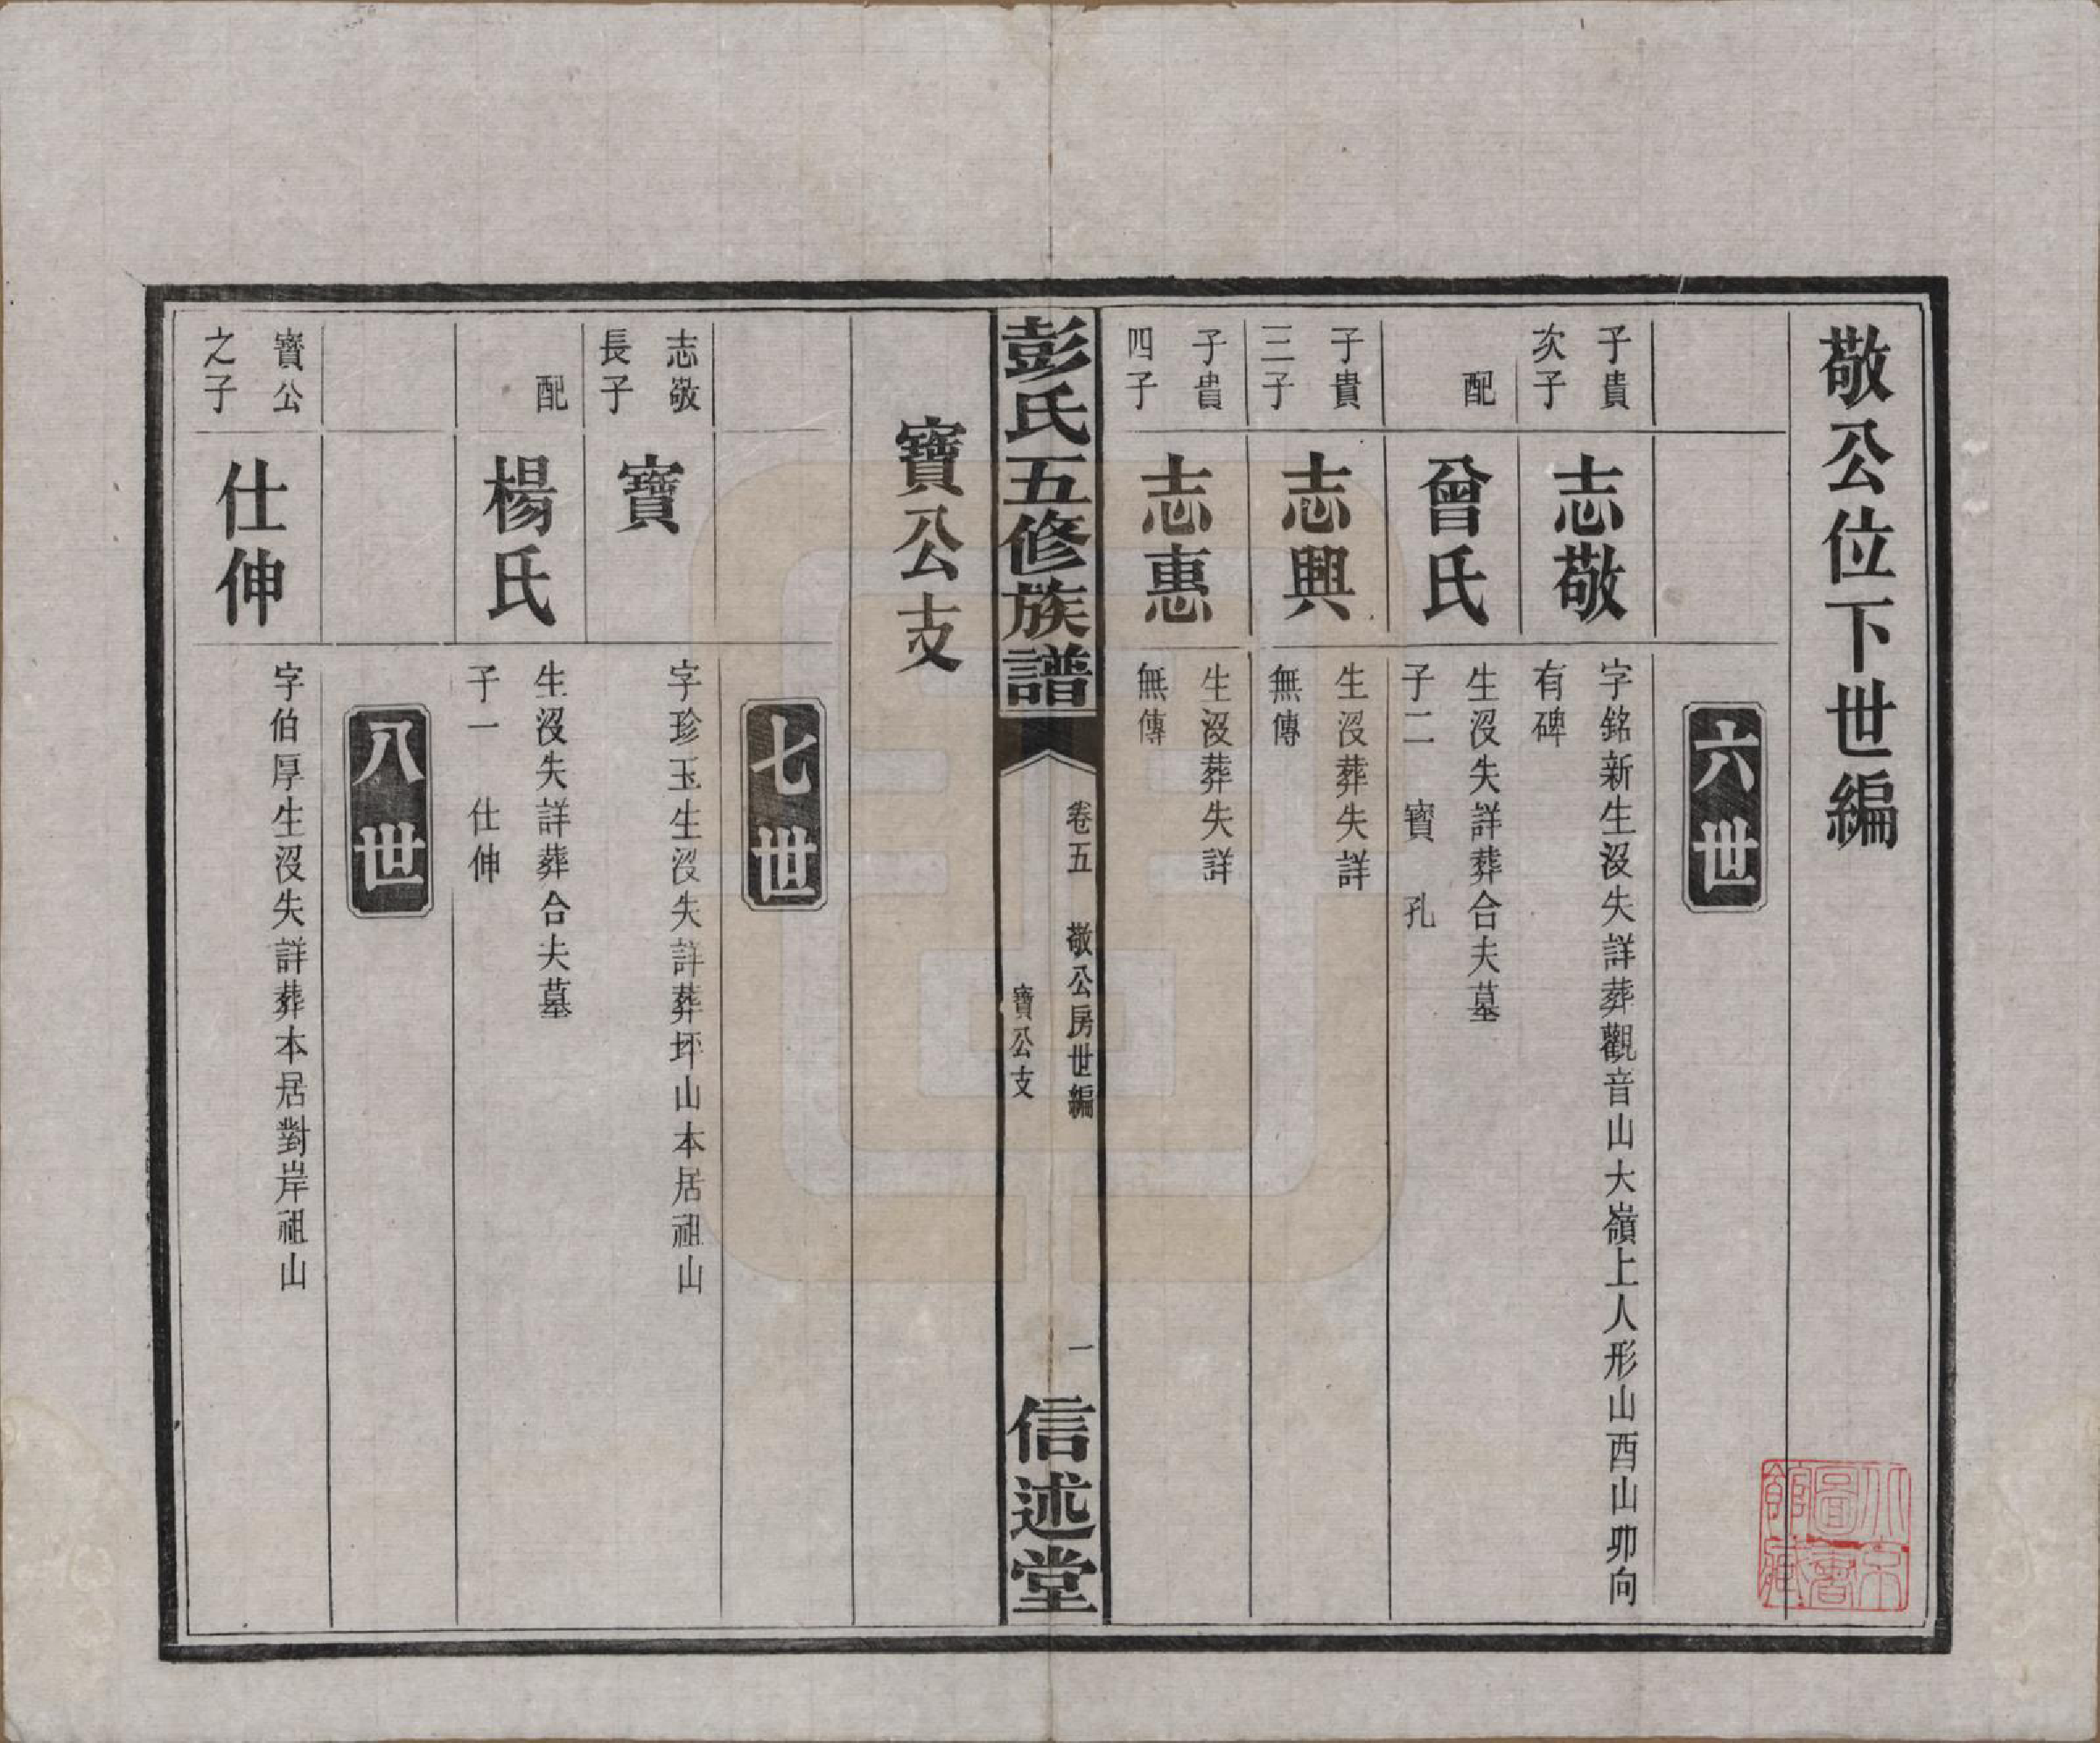 敬公位下世編
六世
子貴
次子
志敬
字銘新生沒失詳葬觀音山大嶺上人形山酉山卯向
有碑
配
曾氏
生沒失詳葬合夫墓
子二 寶 孔
子貴
三子
志興
生沒葬失詳
無傳
子貴
四子
志惠
生沒葬失詳
無傳
彭氏五修族譜
卷五 敬公房世編
寶公支
一
信述堂
寶公支
七世
志敬
長子
寶
字珍玉生沒失詳葬坪山本居祖山
配
楊氏
生沒失詳葬合夫墓
子一 仕伸
八世
寶公
之子
仕伸
字伯厚生沒失詳葬本居對岸祖山
北京
圖書
館藏